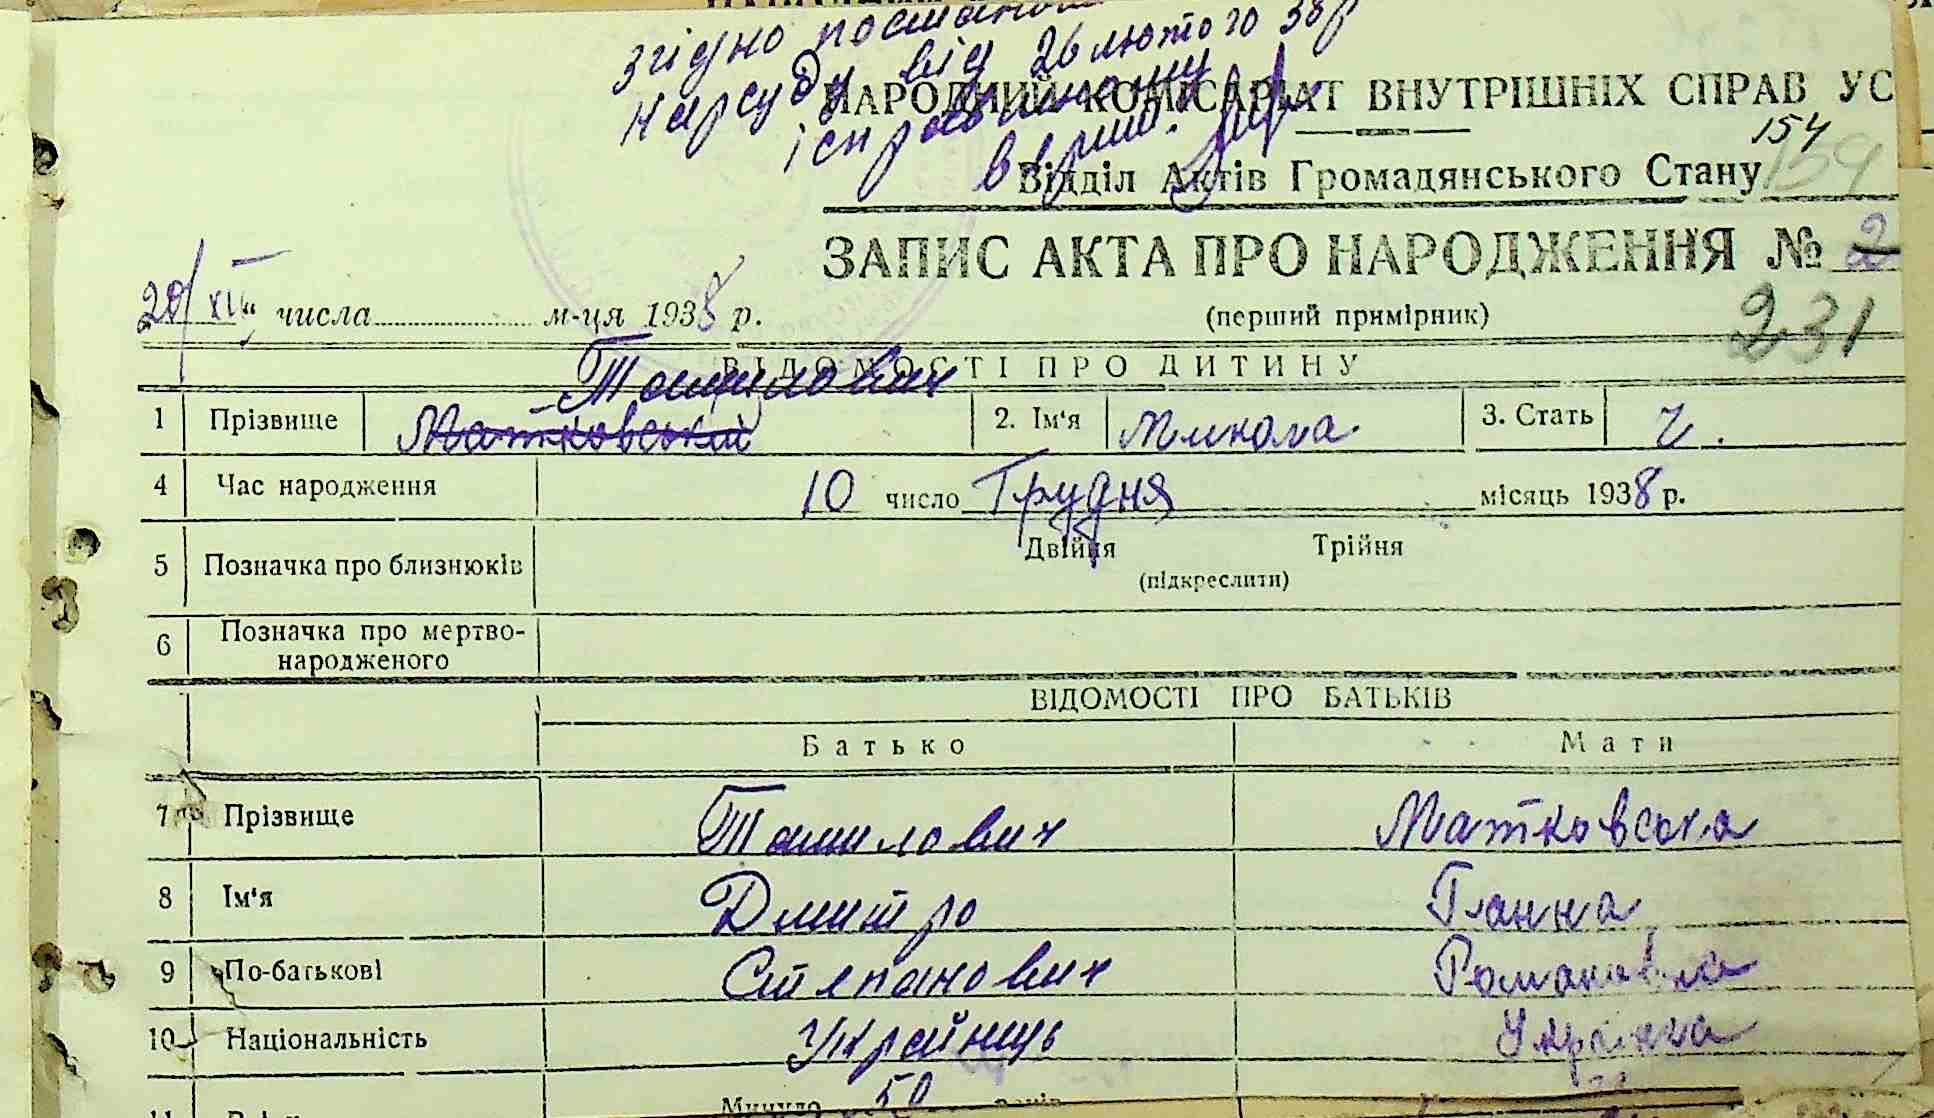 згідно
Нарсуду від 26 лютого 38р
ісправленому
НАРОДНИЙ КОМІСАРІАТ ВНУТРІШНІХ СПРАВ УС
154
Відділ Актів Громадянського Стану 159
ЗАПИС АКТА ПРО НАРОДЖЕННЯ № 2
231
„20/XII“ числа м-ця 1938 р.
(перший примірник)
ВІДОМОСТІ ПРО ДИТИНУ
Томилович
1 Прізвище Матковський 2. Ім'я Микола 3. Стать ч.
4 Час народження 10 число Грудня місяць 1938 р.
5 Позначка про близнюків Двійня Трійня
(підкреслити)
6 Позначка про мертво-
народженого
ВІДОМОСТІ ПРО БАТЬКІВ
Батько Мати
7 Прізвище Томилович Матковська
8 Ім'я Дмитро Ганна
9 По-батькові Степанович Романовна
10 Національність Українець Українка
11 Минуло 50 років